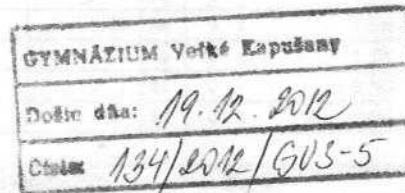 GYMNÁZIUM Veľké Kapušany
Došlo dňa: 19.12.2012
Číslo: 134/2012/GVS-5